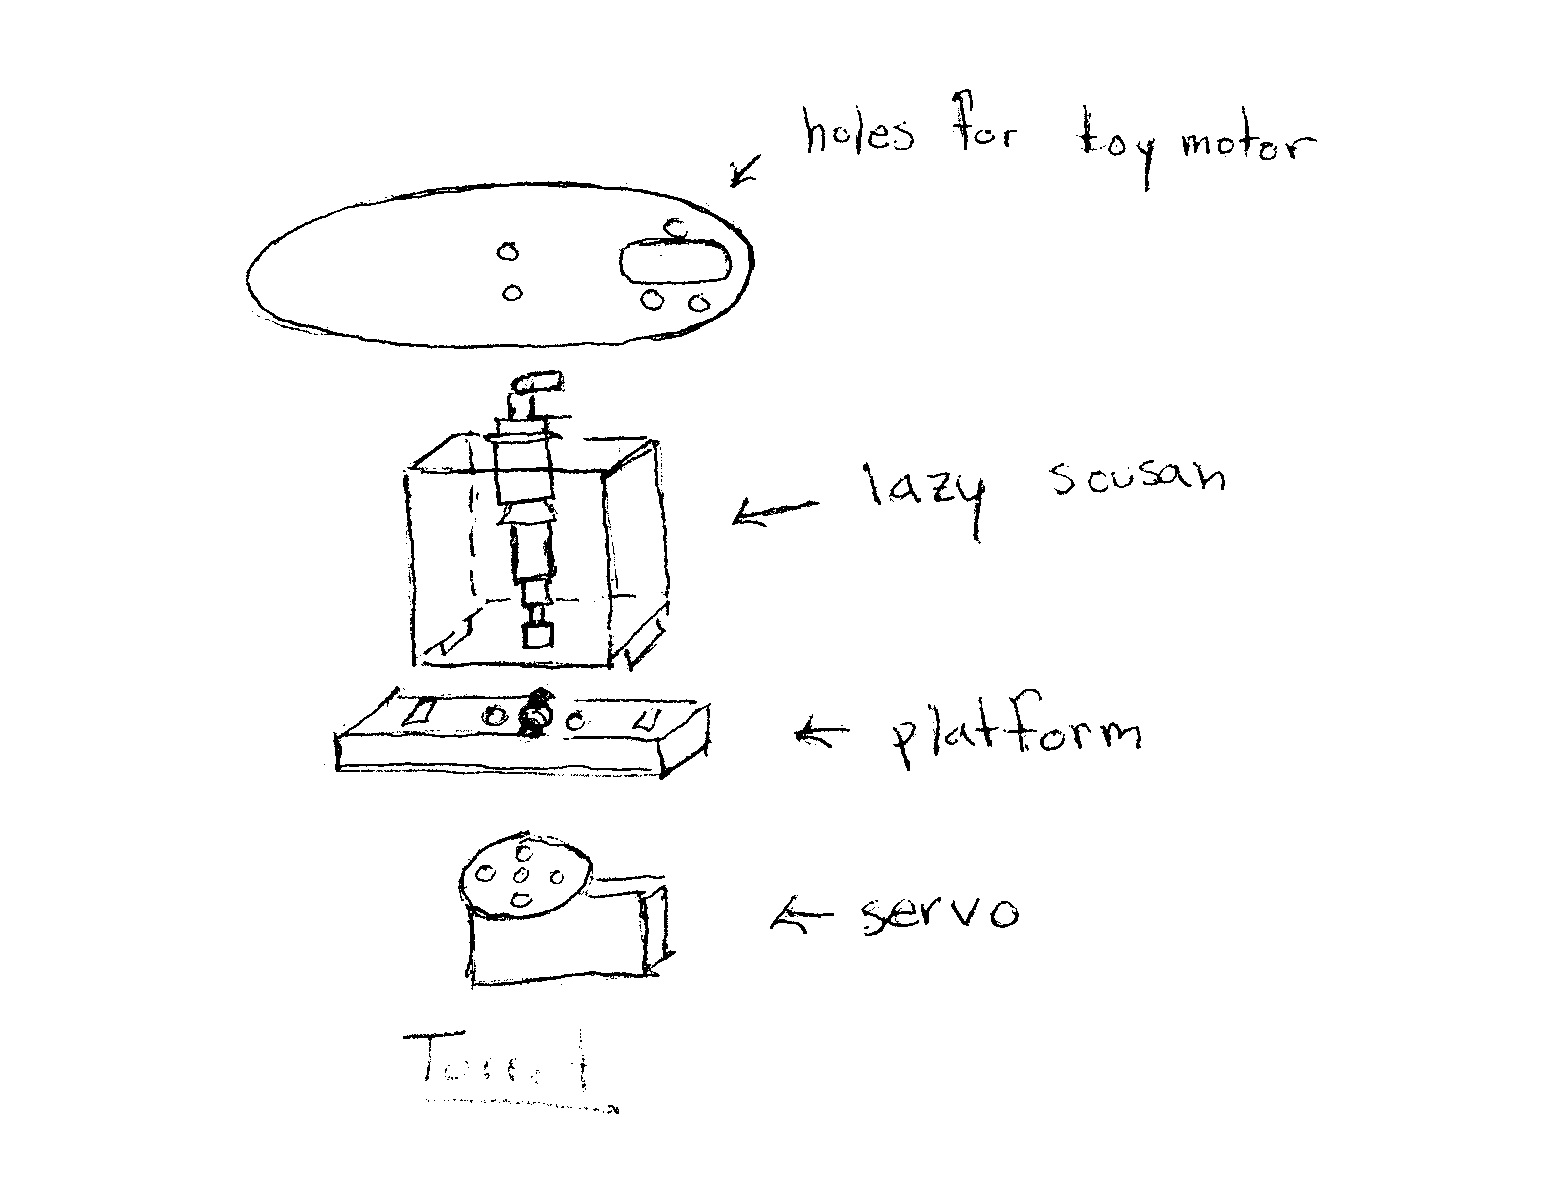 holes for toy motor
lazy sousan
platform
servo